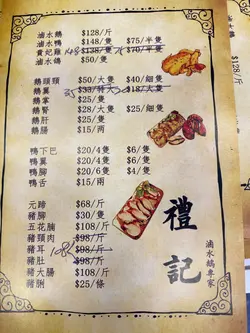 滷水鵝 $128/斤
滷水鴨 $148/隻 $75/半隻
貴妃雞 $138/隻 $70/半隻
滷水鴿 $50/隻
鵝頭頸 $50/大隻 $40/細隻
鵝翼 35 $33/特大 $18/大隻
鵝掌 $50/大隻
鵝腎 $28/大隻 $25/細隻
鵝肝 $15/隻
鵝腸 $15/両
鴨下巴 $20/4隻 $6/隻
鴨翼 $20/4隻 $6/隻
鴨腳 $20/6隻 $4/隻
鴨舌 $15/兩
元蹄 $68/斤
豬腳 $30/隻
五花腩 $108/斤
豬頸肉 $98/斤
豬耳 $98/斤
豬肚 108 $98/斤
豬大腸 $108/斤
豬脷 $25/條
禮記
滷水鵝專家